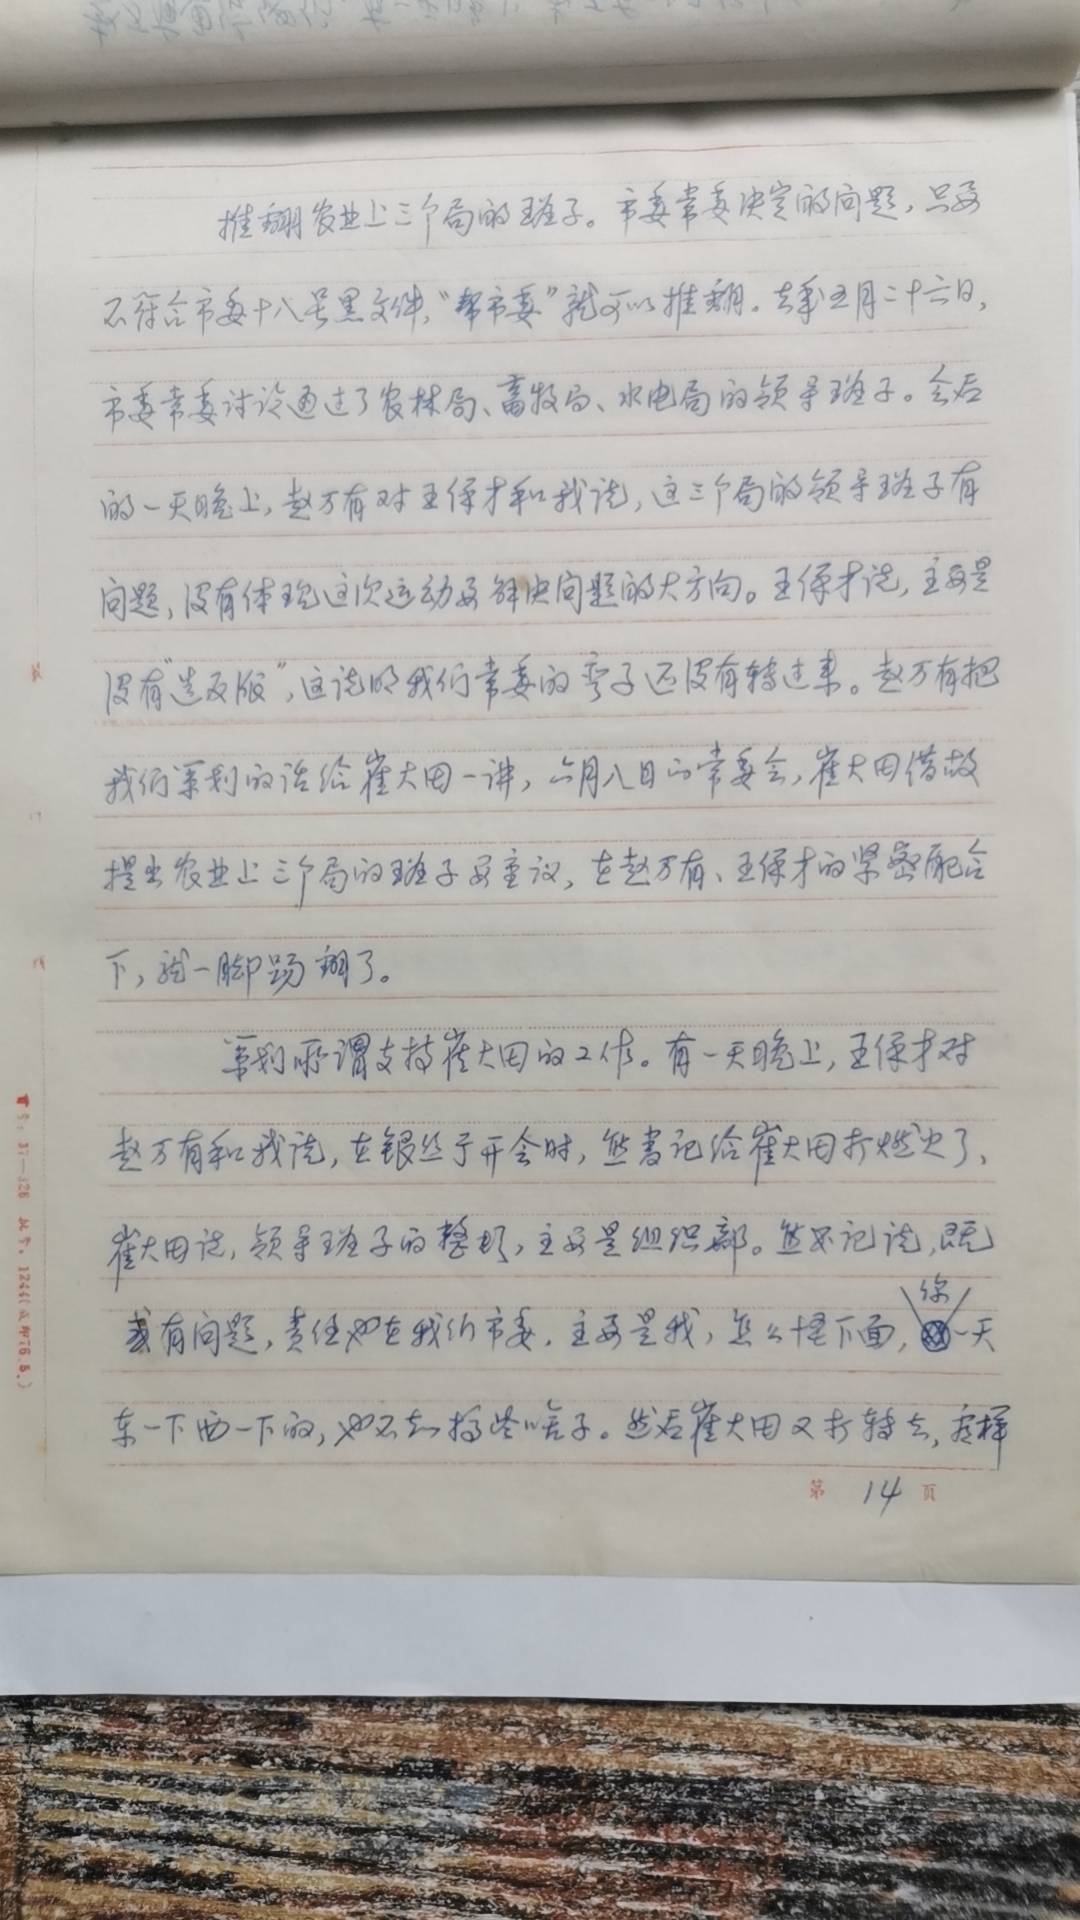 推翻农业上三个局的班子。市委常委决定的问题，只要
不符合市委十八号黑文件，“帮市委”就可以推翻。去年五月二十六日，
市委常委讨论通过了农林局、畜牧局、水电局的领导班子。会后
的一天晚上，赵万有对王保才和我说，这三个局的领导班子有
问题，没有体现这次运动要解决问题的大方向。王保才说，主要是
没有“造反派”，这说明我们常委的弯子还没有转过来。赵万有把
我们策划的话给崔大田一讲，六月八日的常委会，崔大田借故
提出农业上三个局的班子要重议，在赵万有、王保才的紧密配合
下，就一脚踢翻了。
策划所谓支持崔大田的工作。有一天晚上，王保才对
赵万有和我说，在银丝于开会时，熊书记给崔大田打燃火了，
崔大田说，领导班子的整顿，主要是组织部。熊书记说，既
或有问题，责任也在我们市委，主要是我，怎么怪下面，你一天
东一下西一下的，也不知搞些啥子。然后崔大田又打转去，
第 14 页